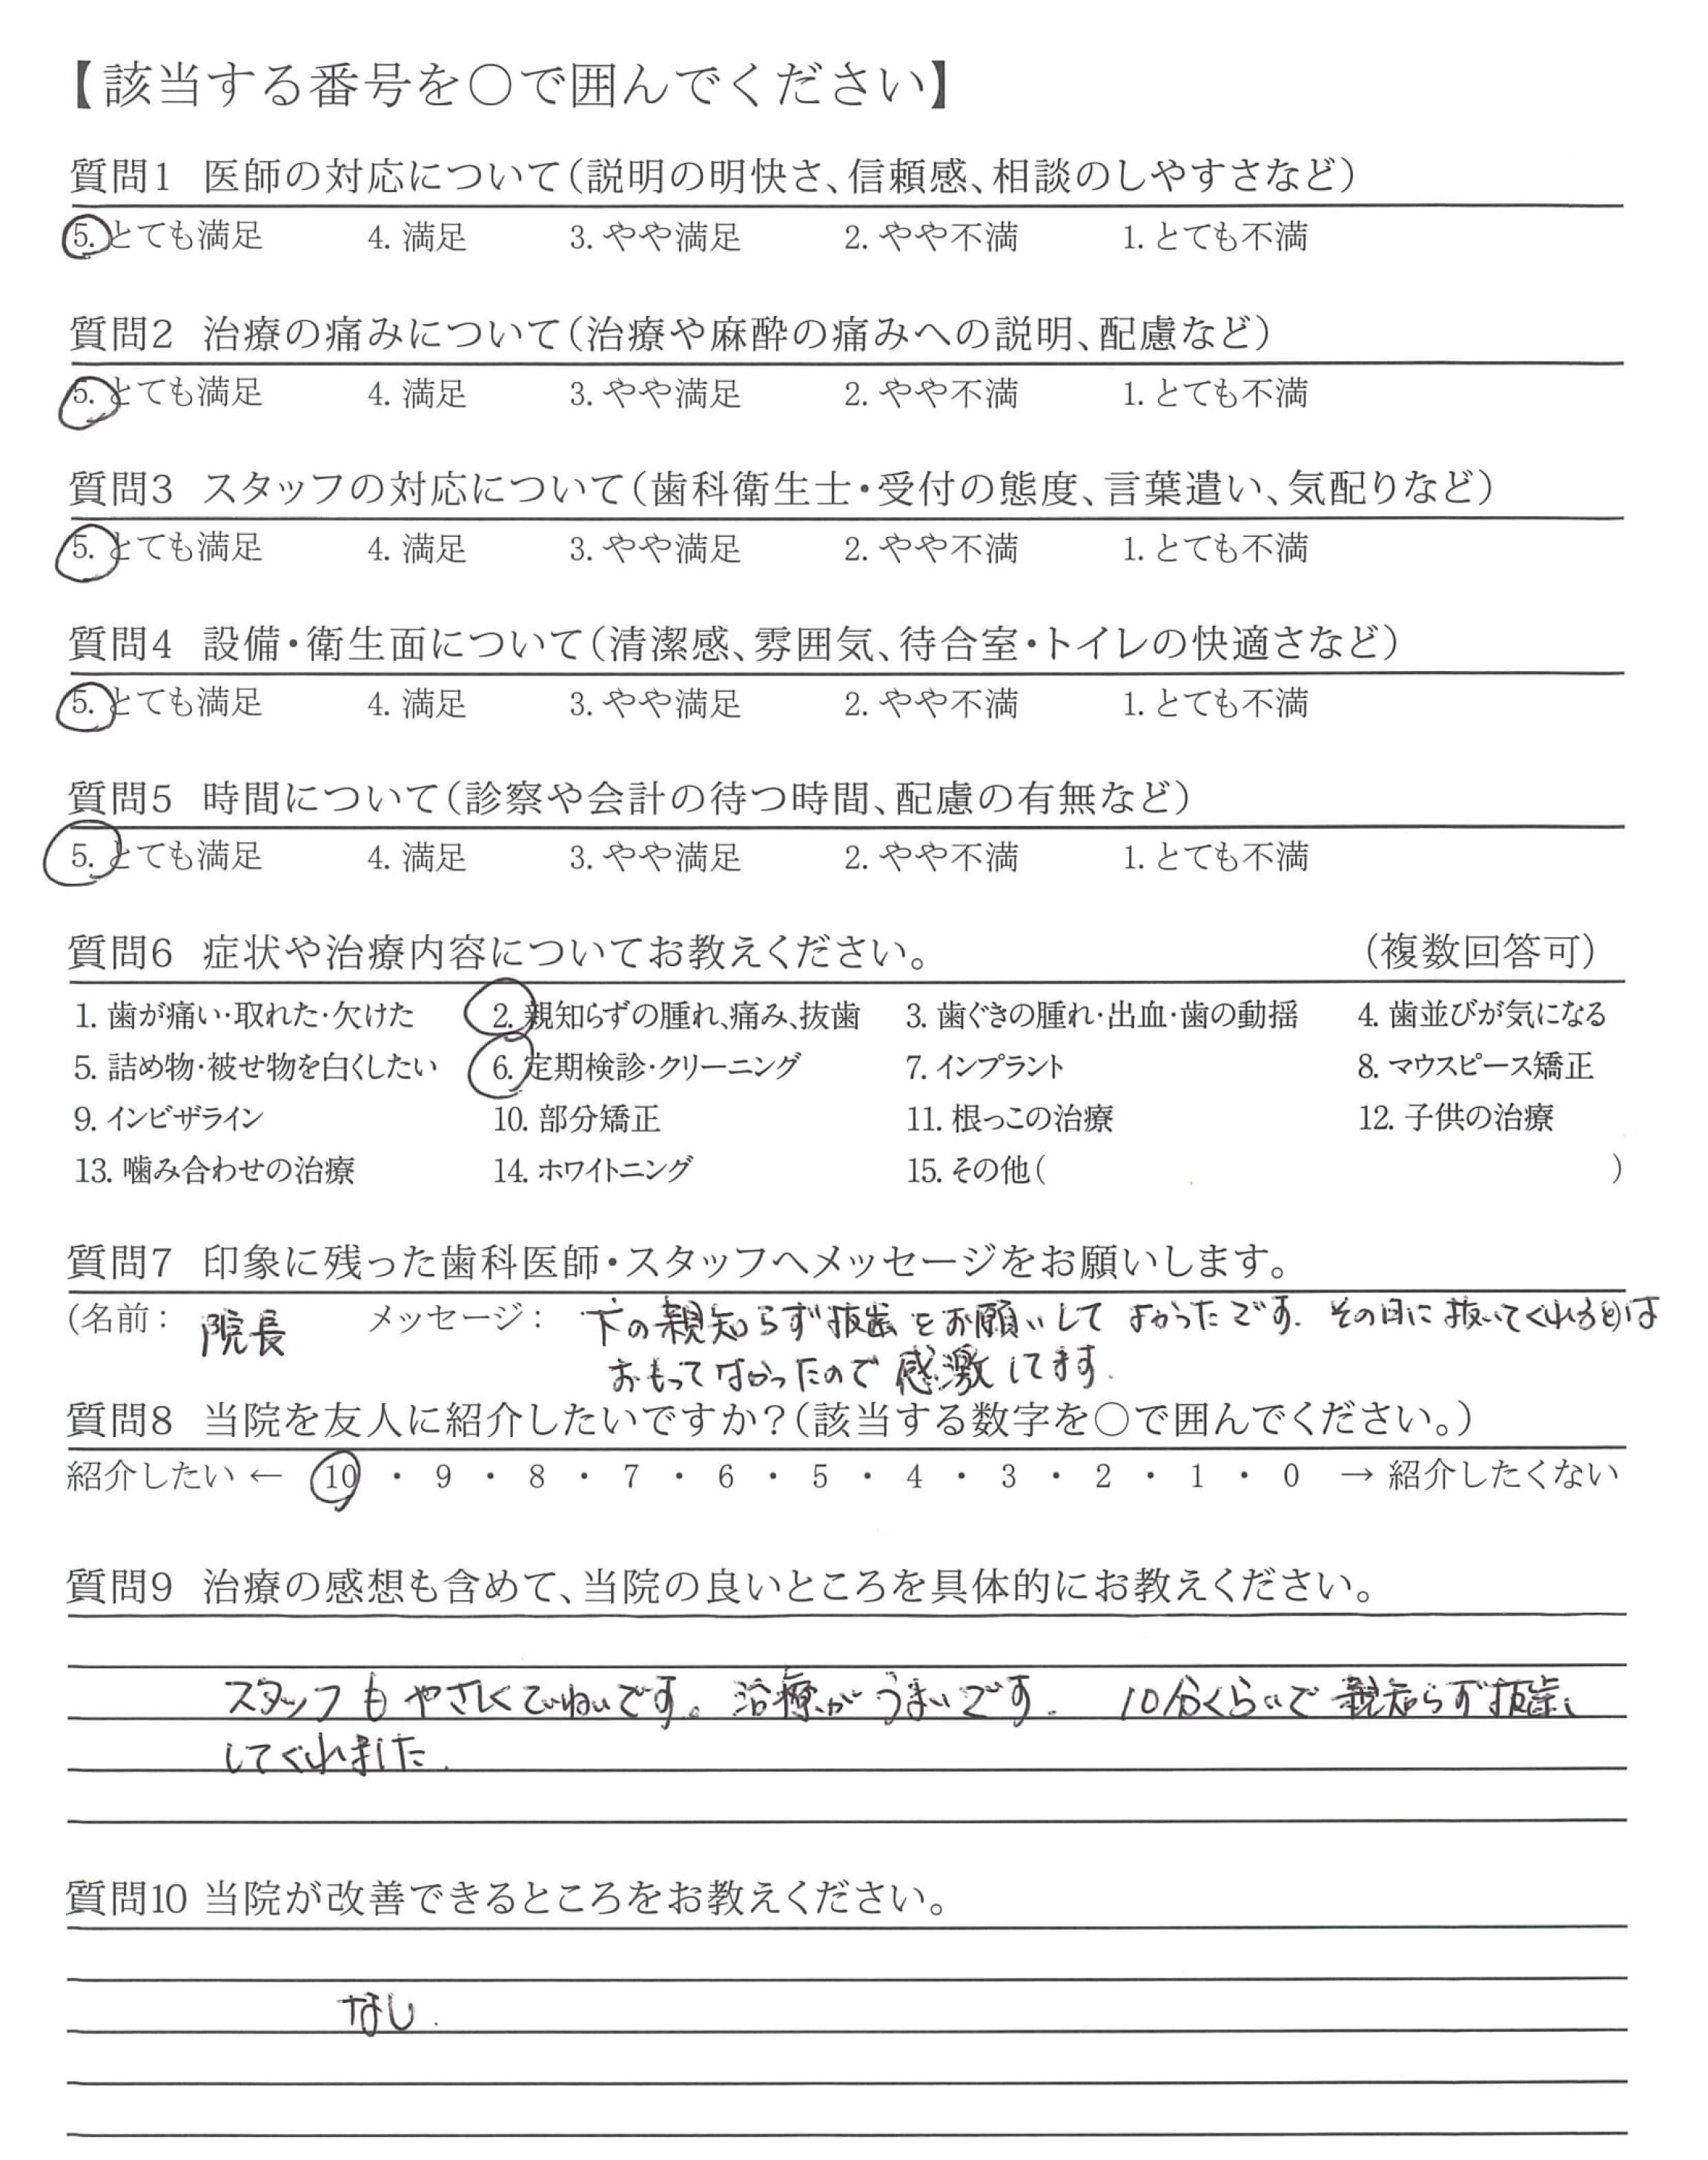 【該当する番号を○で囲んでください】
質問1 医師の対応について(説明の明快さ、信頼感、相談のしやすさなど)
5. とても満足 4. 満足 3. やや満足 2. やや不満 1. とても不満
質問2 治療の痛みについて(治療や麻酔の痛みへの説明、配慮など)
5. とても満足 4. 満足 3. やや満足 2. やや不満 1. とても不満
質問3 スタッフの対応について(歯科衛生士・受付の態度、言葉遣い、気配りなど)
5. とても満足 4. 満足 3. やや満足 2. やや不満 1. とても不満
質問4 設備・衛生面について(清潔感、雰囲気、待合室・トイレの快適さなど)
5. とても満足 4. 満足 3. やや満足 2. やや不満 1. とても不満
質問5 時間について(診察や会計の待つ時間、配慮の有無など)
5. とても満足 4. 満足 3. やや満足 2. やや不満 1. とても不満
質問6 症状や治療内容についてお教えください。 (複数回答可)
1. 歯が痛い・取れた・欠けた 2. 親知らずの腫れ、痛み、抜歯 3. 歯ぐきの腫れ・出血・歯の動揺 4. 歯並びが気になる
5. 詰め物・被せ物を白くしたい 6. 定期検診・クリーニング 7. インプラント 8. マウスピース矯正
9. インビザライン 10. 部分矯正 11. 根っこの治療 12. 子供の治療
13. 噛み合わせの治療 14. ホワイトニング 15. その他( )
質問7 印象に残った歯科医師・スタッフへメッセージをお願いします。
(名前: 院長 メッセージ: 下の親知らず抜歯をお願いしてよかったです. その日に抜いてくれるとは
おもってなかったので感激してます.
質問8 当院を友人に紹介したいですか?(該当する数字を○で囲んでください。)
紹介したい ← 10 ・ 9 ・ 8 ・ 7 ・ 6 ・ 5 ・ 4 ・ 3 ・ 2 ・ 1 ・ 0 → 紹介したくない
質問9 治療の感想も含めて、当院の良いところを具体的にお教えください。
スタッフもやさしくていねいです。治療がうまいです. 10分くらいで親知らず抜歯
してくれました.
質問10 当院が改善できるところをお教えください。
なし.